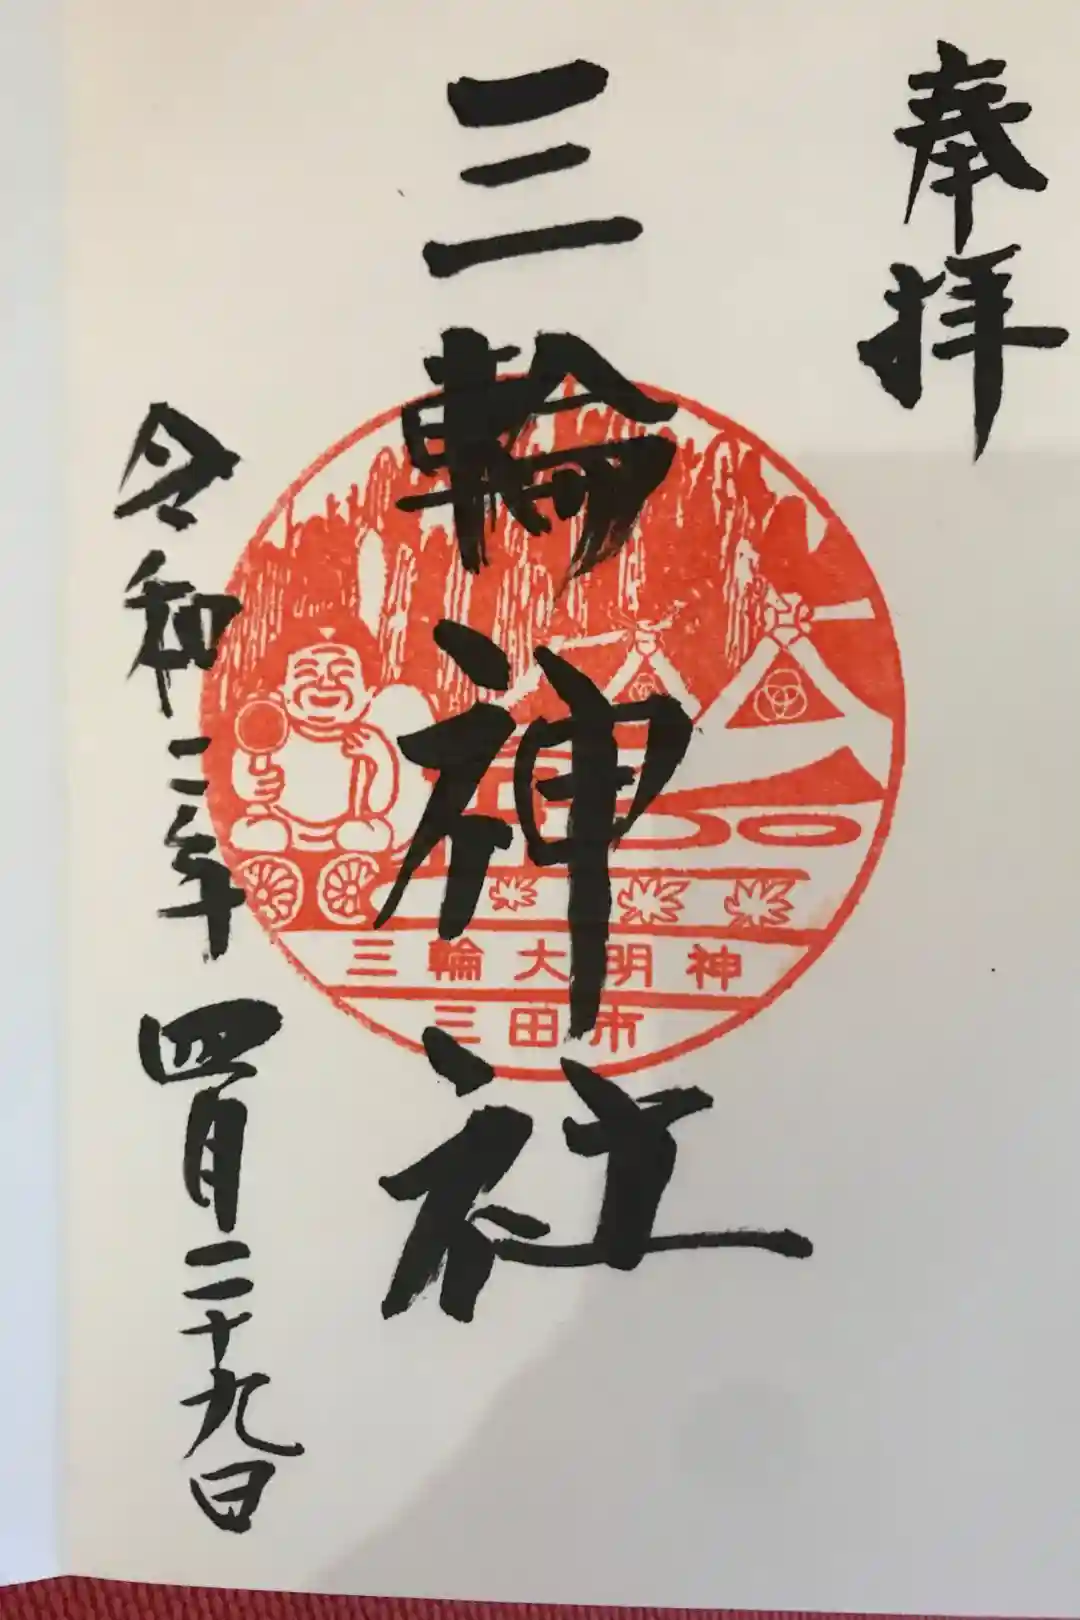 奉拝
三輪神社
三輪大明神
三田市
令和二年四月二十九日